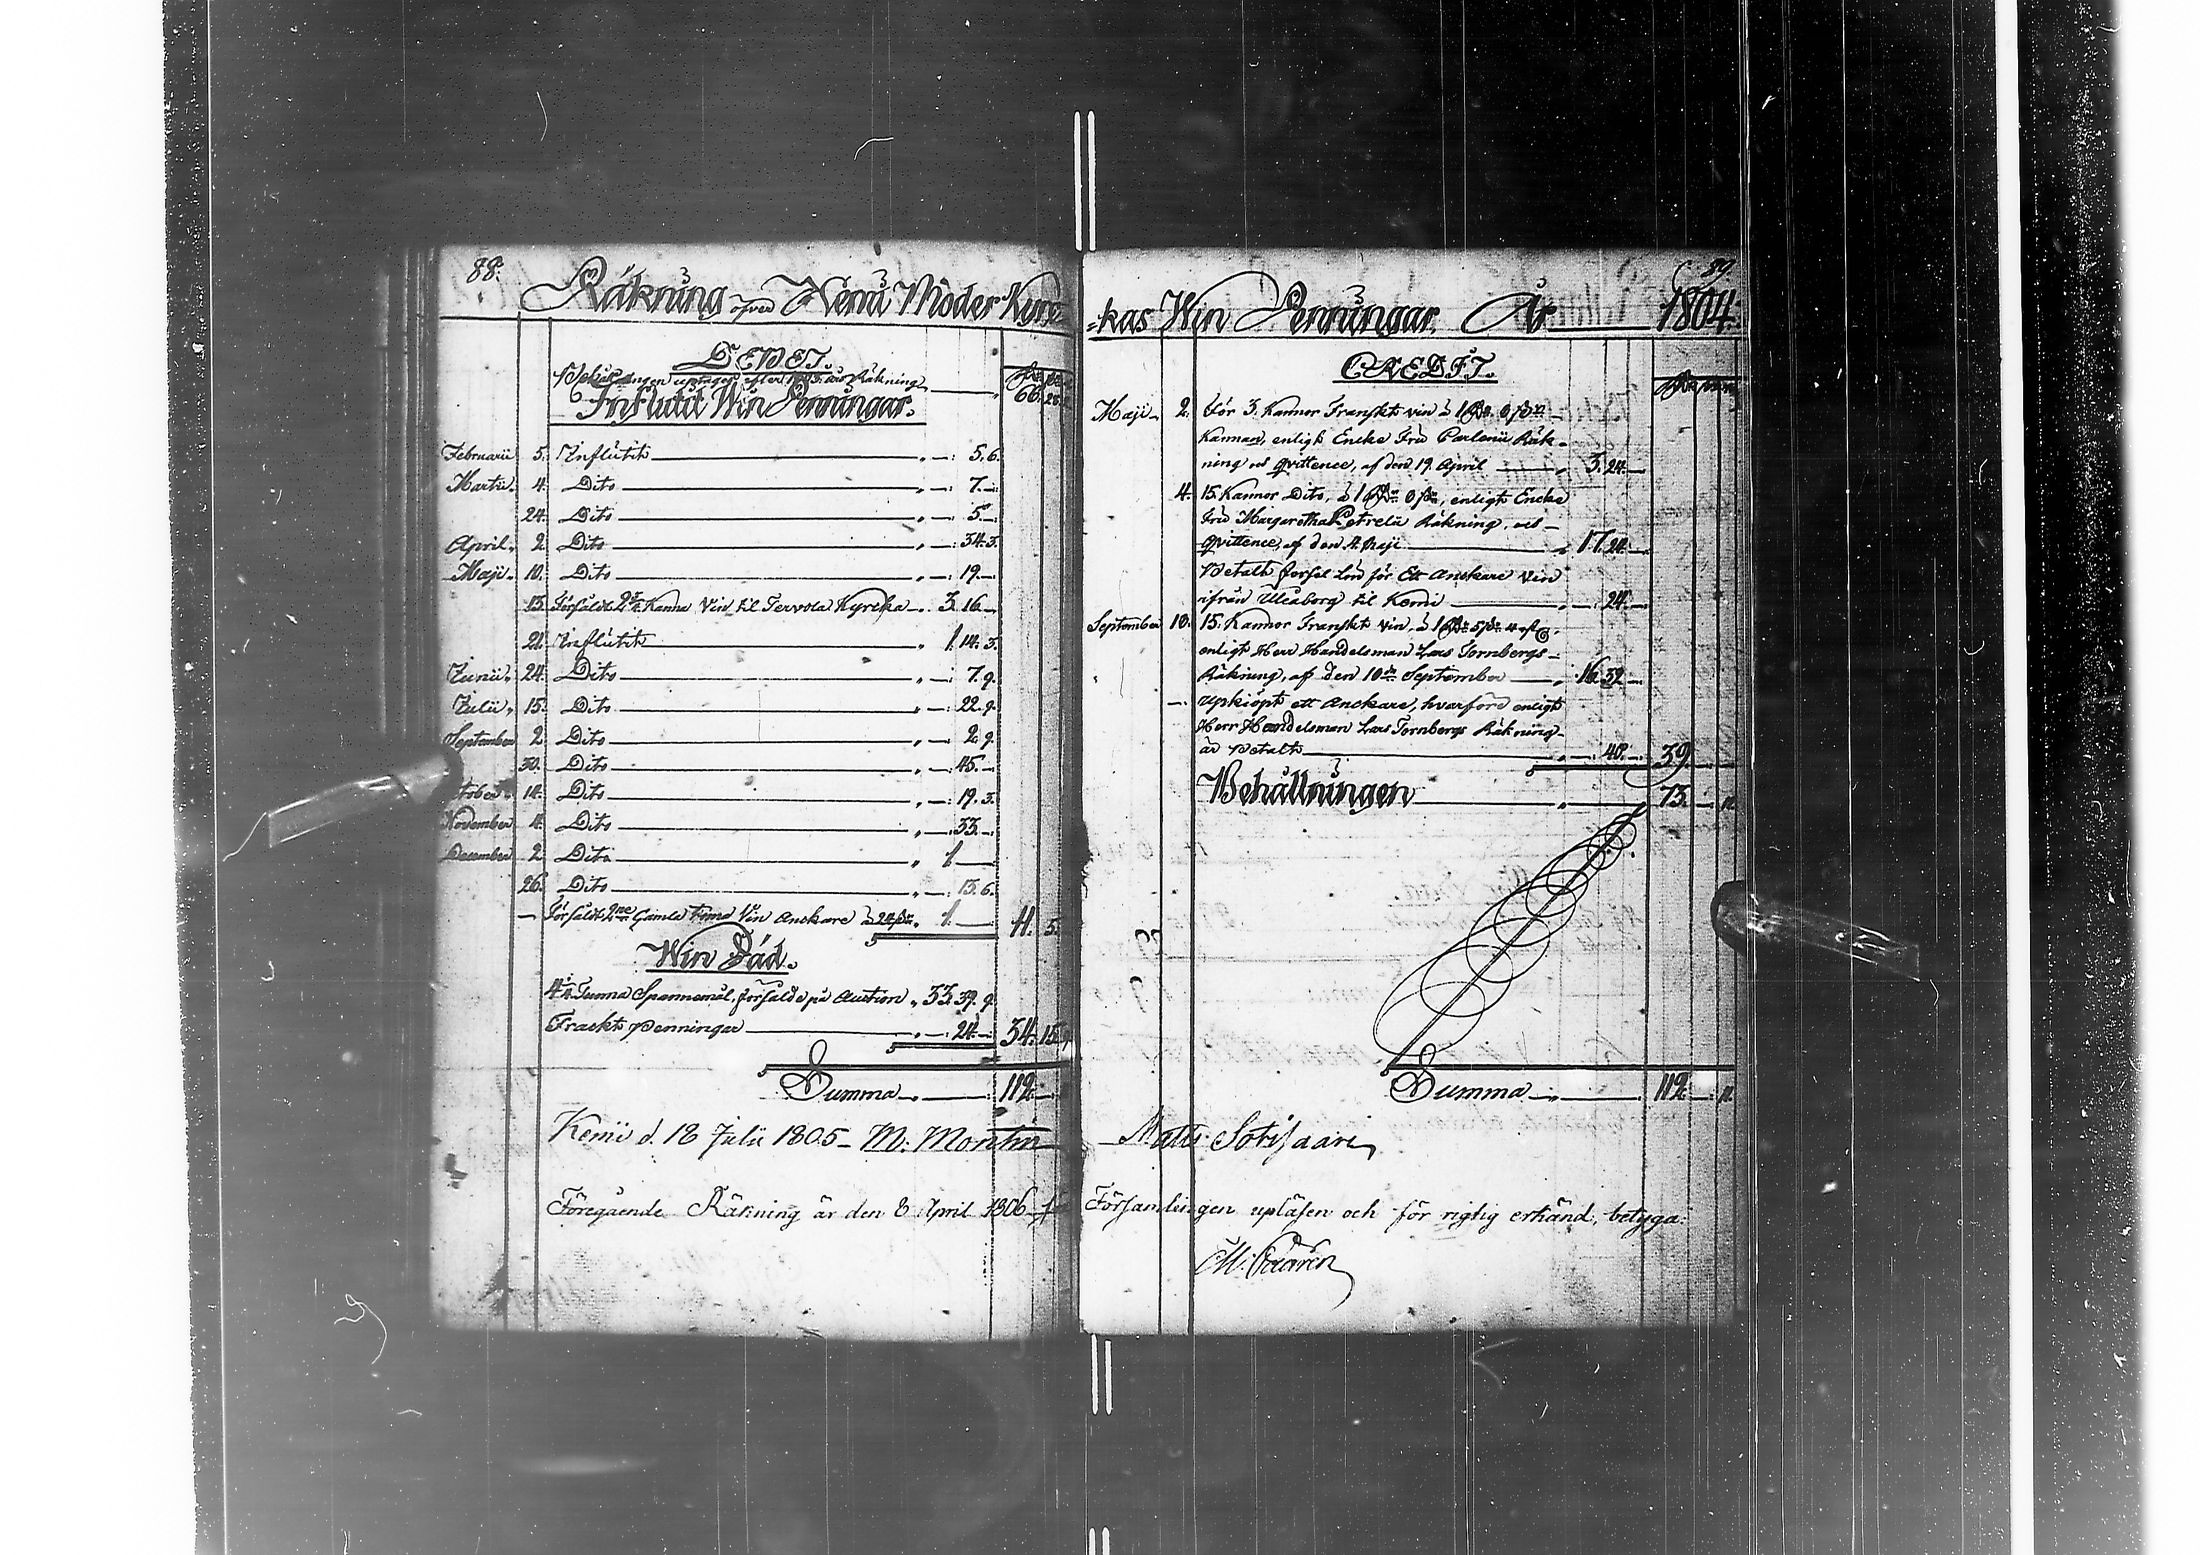 88.
Räkning öfver Kemi Moder Kyrc
DEBET.
Behållningen uptages efter 1803 års Räkning 66. 25.
Influtit Win Penningar.
Februarii 5. Influtit „ —: 5. 6.
Martii. 4. Dito „ —: 7. —:
24. Dito „ —: 5. —
April. 2. Dito „ —: 34. 3.
Maji. 10. Dito „ —: 19. —
13. Försåldt Kanna Vin til Tervola Kyrcka „ 3. 16. —
21. Influtit „ 1. 14. 3.
Junii. 24. Dito „ —: 7. 9.
Julii. 15. Dito „ —: 22. 9.
September 2. Dito „ —: 2. 9.
30. Dito „ —: 45. —
October. 14. Dito „ —: 19. 3.
November 4. Dito „ —: 33. —:
December 2. Dito „ 1. —
26. Dito „ —: 13. 6.
— Försåldt 2ne Gamla toma Vin Anckare à 24 sk. „ 1. — 11. 5.
Win Säd.
Tunna Spannemål, försålde på Auction „ 33. 39. 9.
Frackt Penningar „ —: 24. — 34. 15. 9.
Summa „ 112. —
Kemi d. 18 Julii 1805 — M. Montin
Föregående Räkning är den 8 April 1806 för
89.
-kas Win Penningar. År 1804.
CREDIT.
Maji 2. För 3. Kannor Franskt vin à 1 Rdr 8 sk
Kannan, enligt Encke Fru Räk-
ning och qvittence, af den 19 April „ 3. 24. —
4. 15. Kannor Dito, à 1 Rdr 8 sk, enligt Encke
Fru Margaretha Petrelii Räkning, och
qvittence, af den 4. Maji „ 17. 24. —
Betalt forsel Lön för Ett Anckare Vin
ifrån Uleåborg til Kemi „ —: 24. —
September 10. 15. Kannor Franskt vin, à 1 Rdr 5 sk 4 rst
enligt Herr Handelsman Lars Tornbergs
Räkning, af den 10de September „ 16. 32. —
— Upkiöpt ett Anckare, hvarföre enligt
Herr Handelsman Lars Tornbergs Räkning
är Betalt „ —: 40. — 39. —
Behållningen „ 73. — 11.
Summa „ 112. — 11.
Matts Sotisaari
Församlingen upläsen och för rigtig erkänd, betyga: